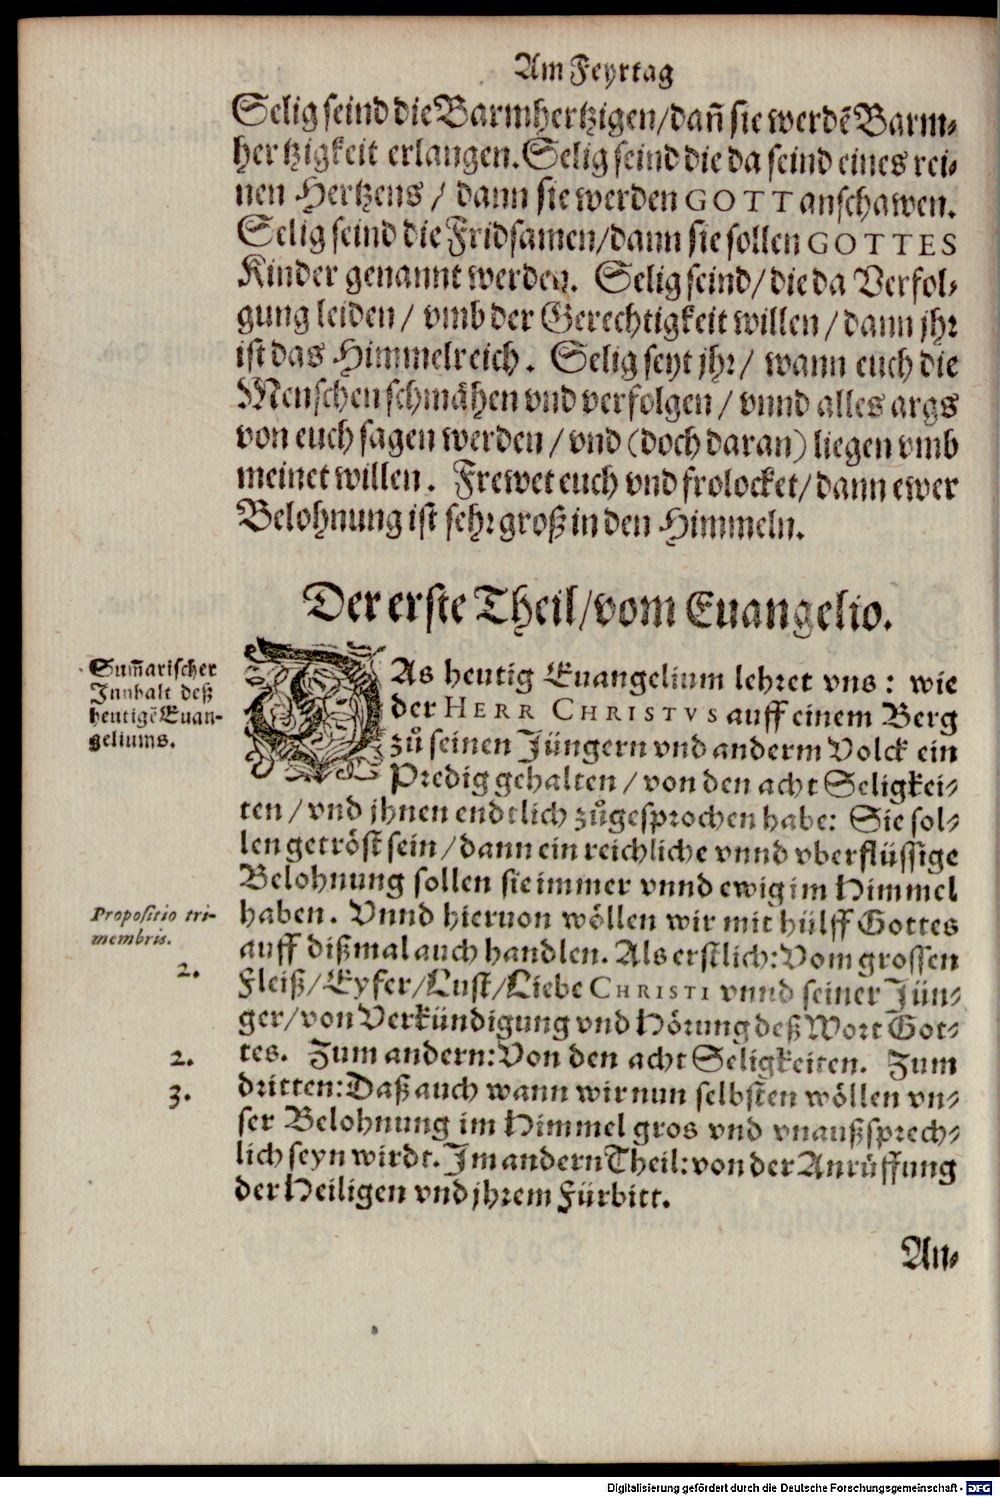 Am Feyrtag
Selig seind die Barmhertzigen/dañ sie werdẽ Barm-
hertzigkeit erlangen. Selig seind die da seind eines rei-
nen Hertzens / dann sie werden GOTT anschawen.
Selig seind die Fridsamen/dann sie sollen GOTTES
Kinder genannt werden. Selig seind/ die da Verfol-
gung leiden / vmb der Gerechtigkeit willen / dann jhr
ist das Himmelreich. Selig seyt jhr / wann euch die
Menschen schmähen vnd verfolgen / vnnd alles args
von euch sagen werden / vnd (doch daran) liegen vmb
meinet willen. Frewet euch vnd frolocket/ dann ewer
Belohnung ist sehr groß in den Himmeln.
Der erste Theil/vom Euangelio.
Sum̃arischer
Jnnhalt deß
heutigẽ Euan-
geliums.
DAs heutig Euangelium lehret vns: wie
der HERR CHRISTVS auff einem Berg
zů seinen Jüngern vnd anderm Volck ein
Predig gehalten / von den acht Seligkei-
ten / vnd jhnen endtlich zůgesprochen habe: Sie sol-
len getröst sein / dann ein reichliche vnnd vberflüssige
Belohnung sollen sie immer vnnd ewig im Himmel
Propositio tri-
membris.
haben. Vnnd hieruon wöllen wir mit hülff Gottes
auff dißmal auch handlen. Als erstlich: Vom grossen
2.
Fleiß/Eyfer/Lust/Liebe CHRISTI vnnd seiner Jün-
ger/von Verkündigung vnd Hörung deß Wort Got-
2.
tes. Zum andern: Von den acht Seligkeiten. Zum
3.
dritten: Daß auch wann wir nun selbsten wöllen vn-
ser Belohnung im Himmel gros vnd vnaußsprech-
lich seyn wirdt. Jm andern Theil: von der Anrüffung
der Heiligen vnd jhrem Fürbitt.
An-
Digitalisierung gefördert durch die Deutsche Forschungsgemeinschaft - DFG